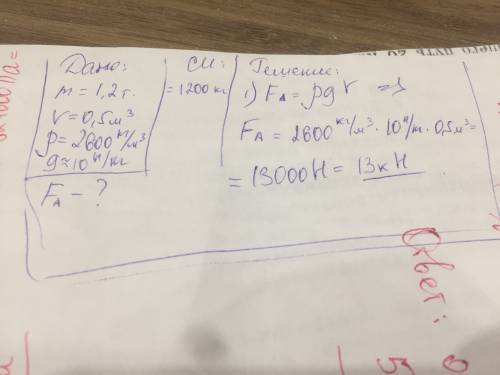 Дано:
m = 1,2 т.
V = 0,5 м³
ρ = 2600 кг/м³
g ≈ 10 Н/кг
Fₐ – ?
СИ:
= 1200 кг
Решение:
1) Fₐ = ρgV =>
Fₐ = 2600 кг/м³ · 10 Н/кг · 0,5 м³ =
= 13000 Н = 13 кН
Ответ: